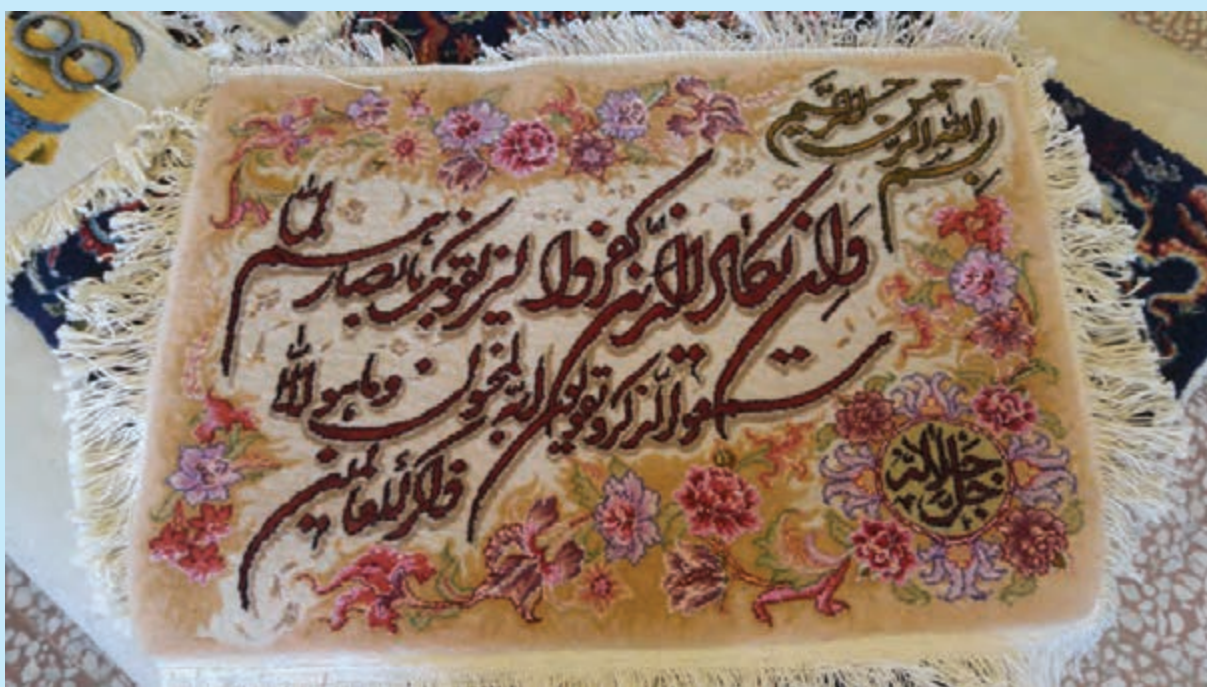 بسم الله الرحمن الرحیم
وَاِن یکاد الذین کفروا لیزلقونک بابصارهم لما
سمعوا الذکر و یقولون انه لمجنون و ما هو الا
ذکر للعالمین
جل جلاله